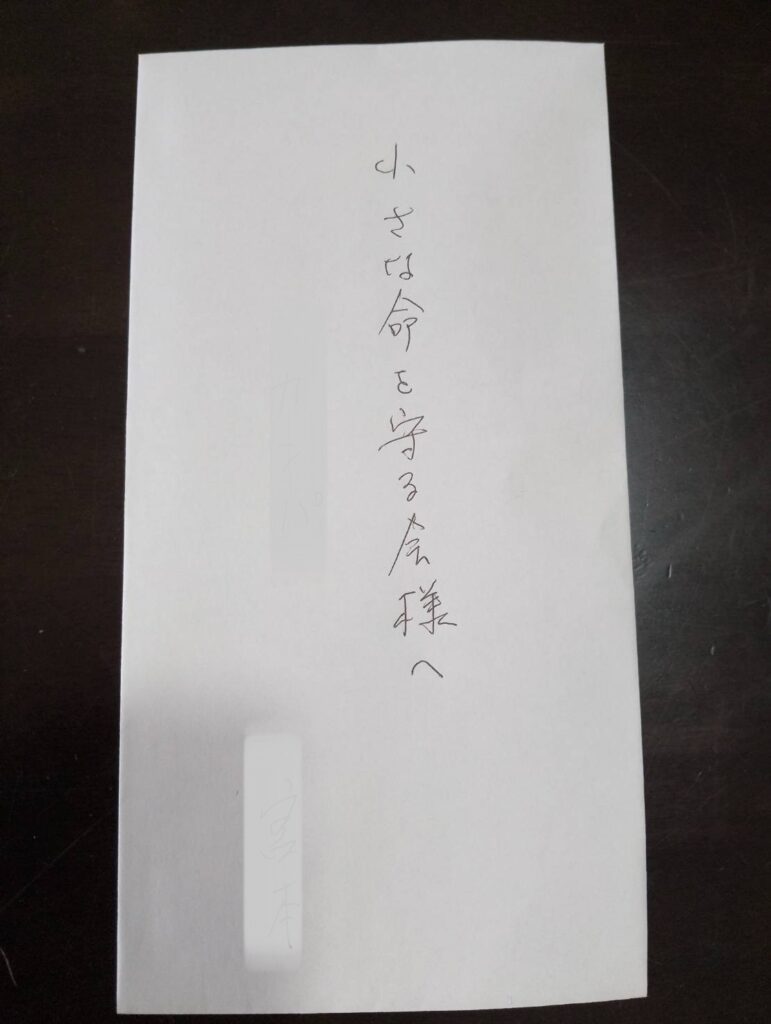 小さな命を守る会様へ